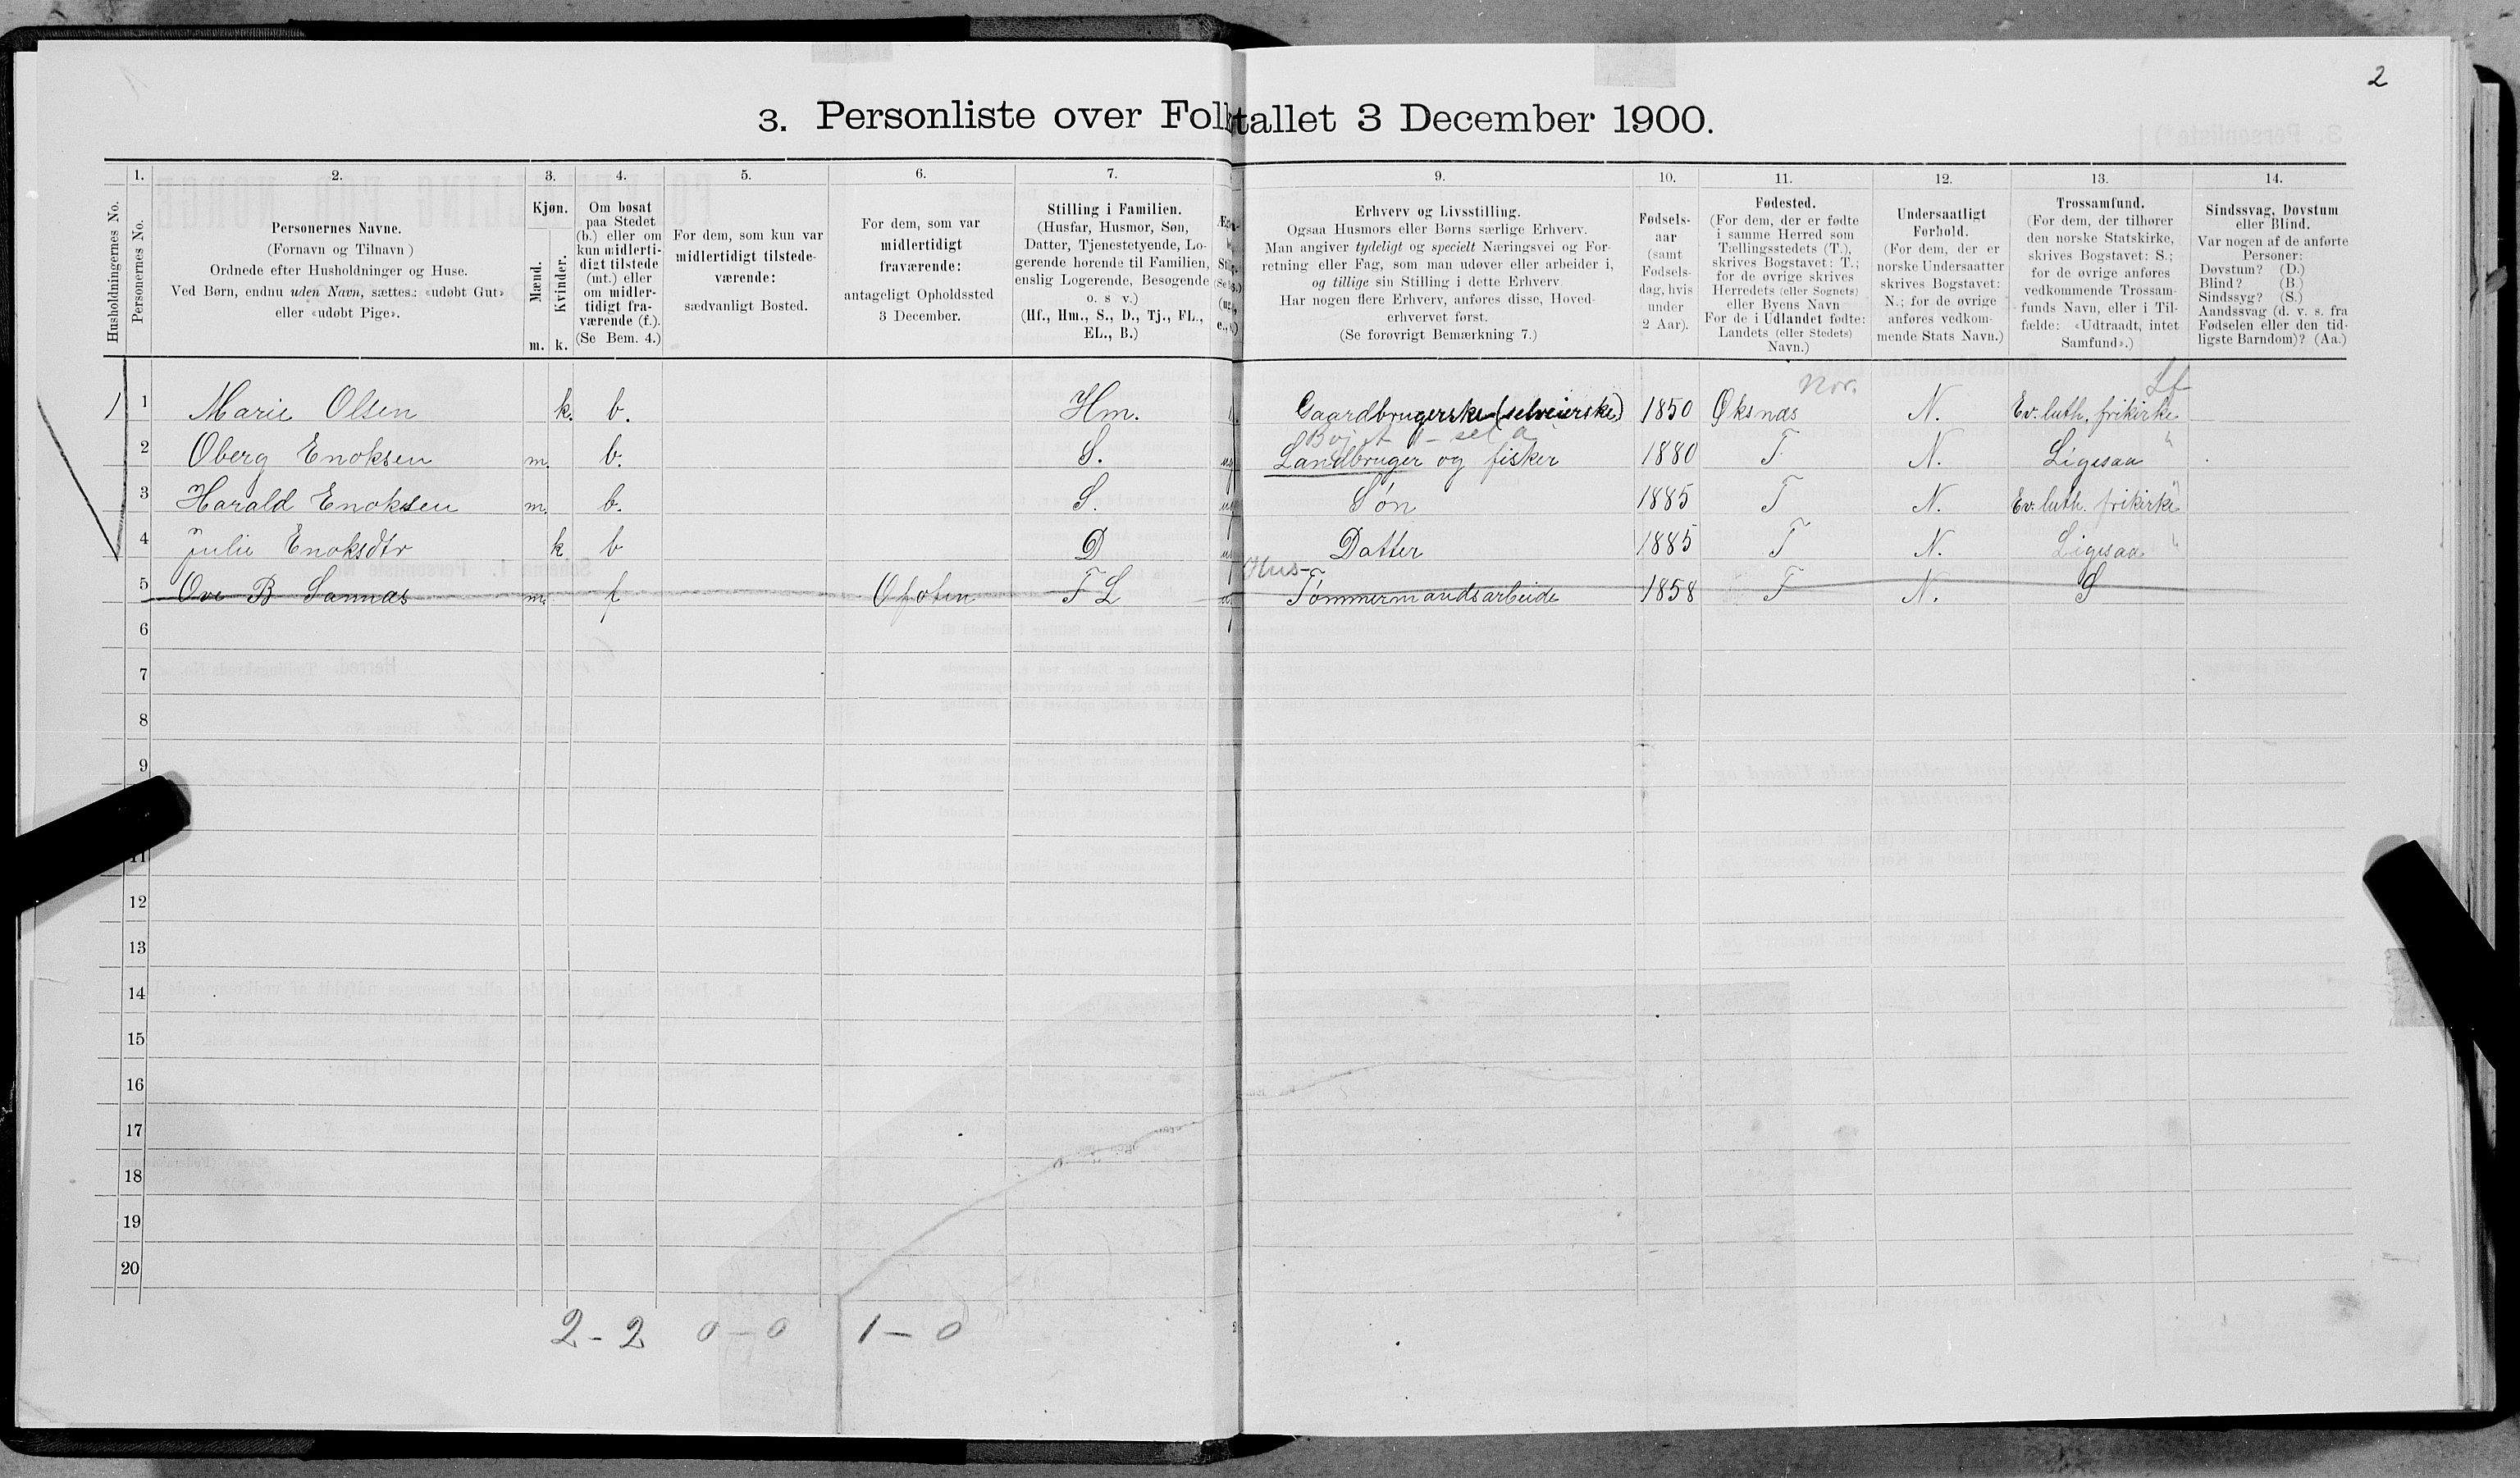 2
3. Personliste over Folketallet 3 December 1900.
Husholdningernes No.
1.
Personernes No.
2.
Personernes Navne.
(Fornavn og Tilnavn)
Ordnede efter Husholdninger og Huse.
Ved Børn, endnu uden Navn, sættes: «udøbt Gut»
eller «udøbt Pige».
3.
Kjøn.
Mænd.
m.
Kvinder.
k.
4.
Om bosat
paa Stedet
(b.) eller om
kun midlerti-
digt tilstede
(mt.) eller
om midler-
tidigt fra-
værende (f.).
(Se Bem. 4.)
5.
For dem, som kun var
midlertidigt tilstede-
værende:
sædvanligt Bosted.
6.
For dem, som var
midlertidigt
fraværende:
antageligt Opholdssted
3 December.
7.
Stilling i Familien.
(Husfar, Husmor, Søn,
Datter, Tjenestetyende, Lo-
gerende hørende til Familien,
enslig Logerende, Besøgende
o. s v.)
(Hf., Hm., S., D., Tj., FL.,
EL., B.)
9.
Erhverv og Livsstilling.
Ogsaa Husmors eller Børns særlige Erhverv.
Man angiver tydeligt og specielt Næringsvei og For-
retning eller Fag, som man udøver eller arbeider i,
og tillige sin Stilling i dette Erhverv.
Har nogen flere Erhverv, anføres disse, Hoved-
erhvervet først.
(Se forøvrigt Bemærkning 7.)
10.
Fødsels-
aar
(samt
Fødsels-
dag, hvis
under
2 Aar).
11.
Fødested.
(For dem, der er fødte
i samme Herred som
Tællingsstedets (T.),
skrives Bogstavet: T.;
for de øvrige skrives
Herredets (eller Sognets)
eller Byens Navn
For de i Udlandet fødte:
Landets (eller Stedets)
Navn.)
12.
Undersaatligt
Forhold.
(For dem, der er
norske Undersaatter
skrives Bogstavet:
N.; for de øvrige
anføres vedkom-
mende Stats Navn.)
13.
Trossamfund.
(For dem, der tilhører
den norske Statskirke,
skrives Bogstavet: S.;
for de øvrige anføres
vedkommende Trossam-
funds Navn, eller i Til-
fælde: «Udtraadt, intet
Samfund».)
14.
Sindssvag, Døvstum
eller Blind.
Var nogen af de anførte
Personer:
Døvstum? (D.)
Blind? (B.)
Sindssyg? (S.)
Aandssvag (d. v. s. fra
Fødselen eller den tid-
ligste Barndom)? (Aa.)
Nor. Lf
1 1 Marie Olsen k. b. Hm. Gaardbrugerske (selveierske) 1850 Øksnæs N. Ev. luth. frikirke
2 Oberg Enoksen m. b. S. ug Landbruger og fisker 1880 T N. Ligesaa "
3 Harald Enoksen m. b. S. ug Søn 1885 T N. Ev. luth. frikirke "
4 Julie Enoksdtr k b D ug Datter 1885 T N. Ligesaa "
Hus-
5 Ove B Sannæs m. f Ofoten FL Tømmermandsarbeide 1858 T N. S
6
7
8
9
11
12
13
14
15
16
17
18
19
20
2 - 2 0 - 0 1 - 0